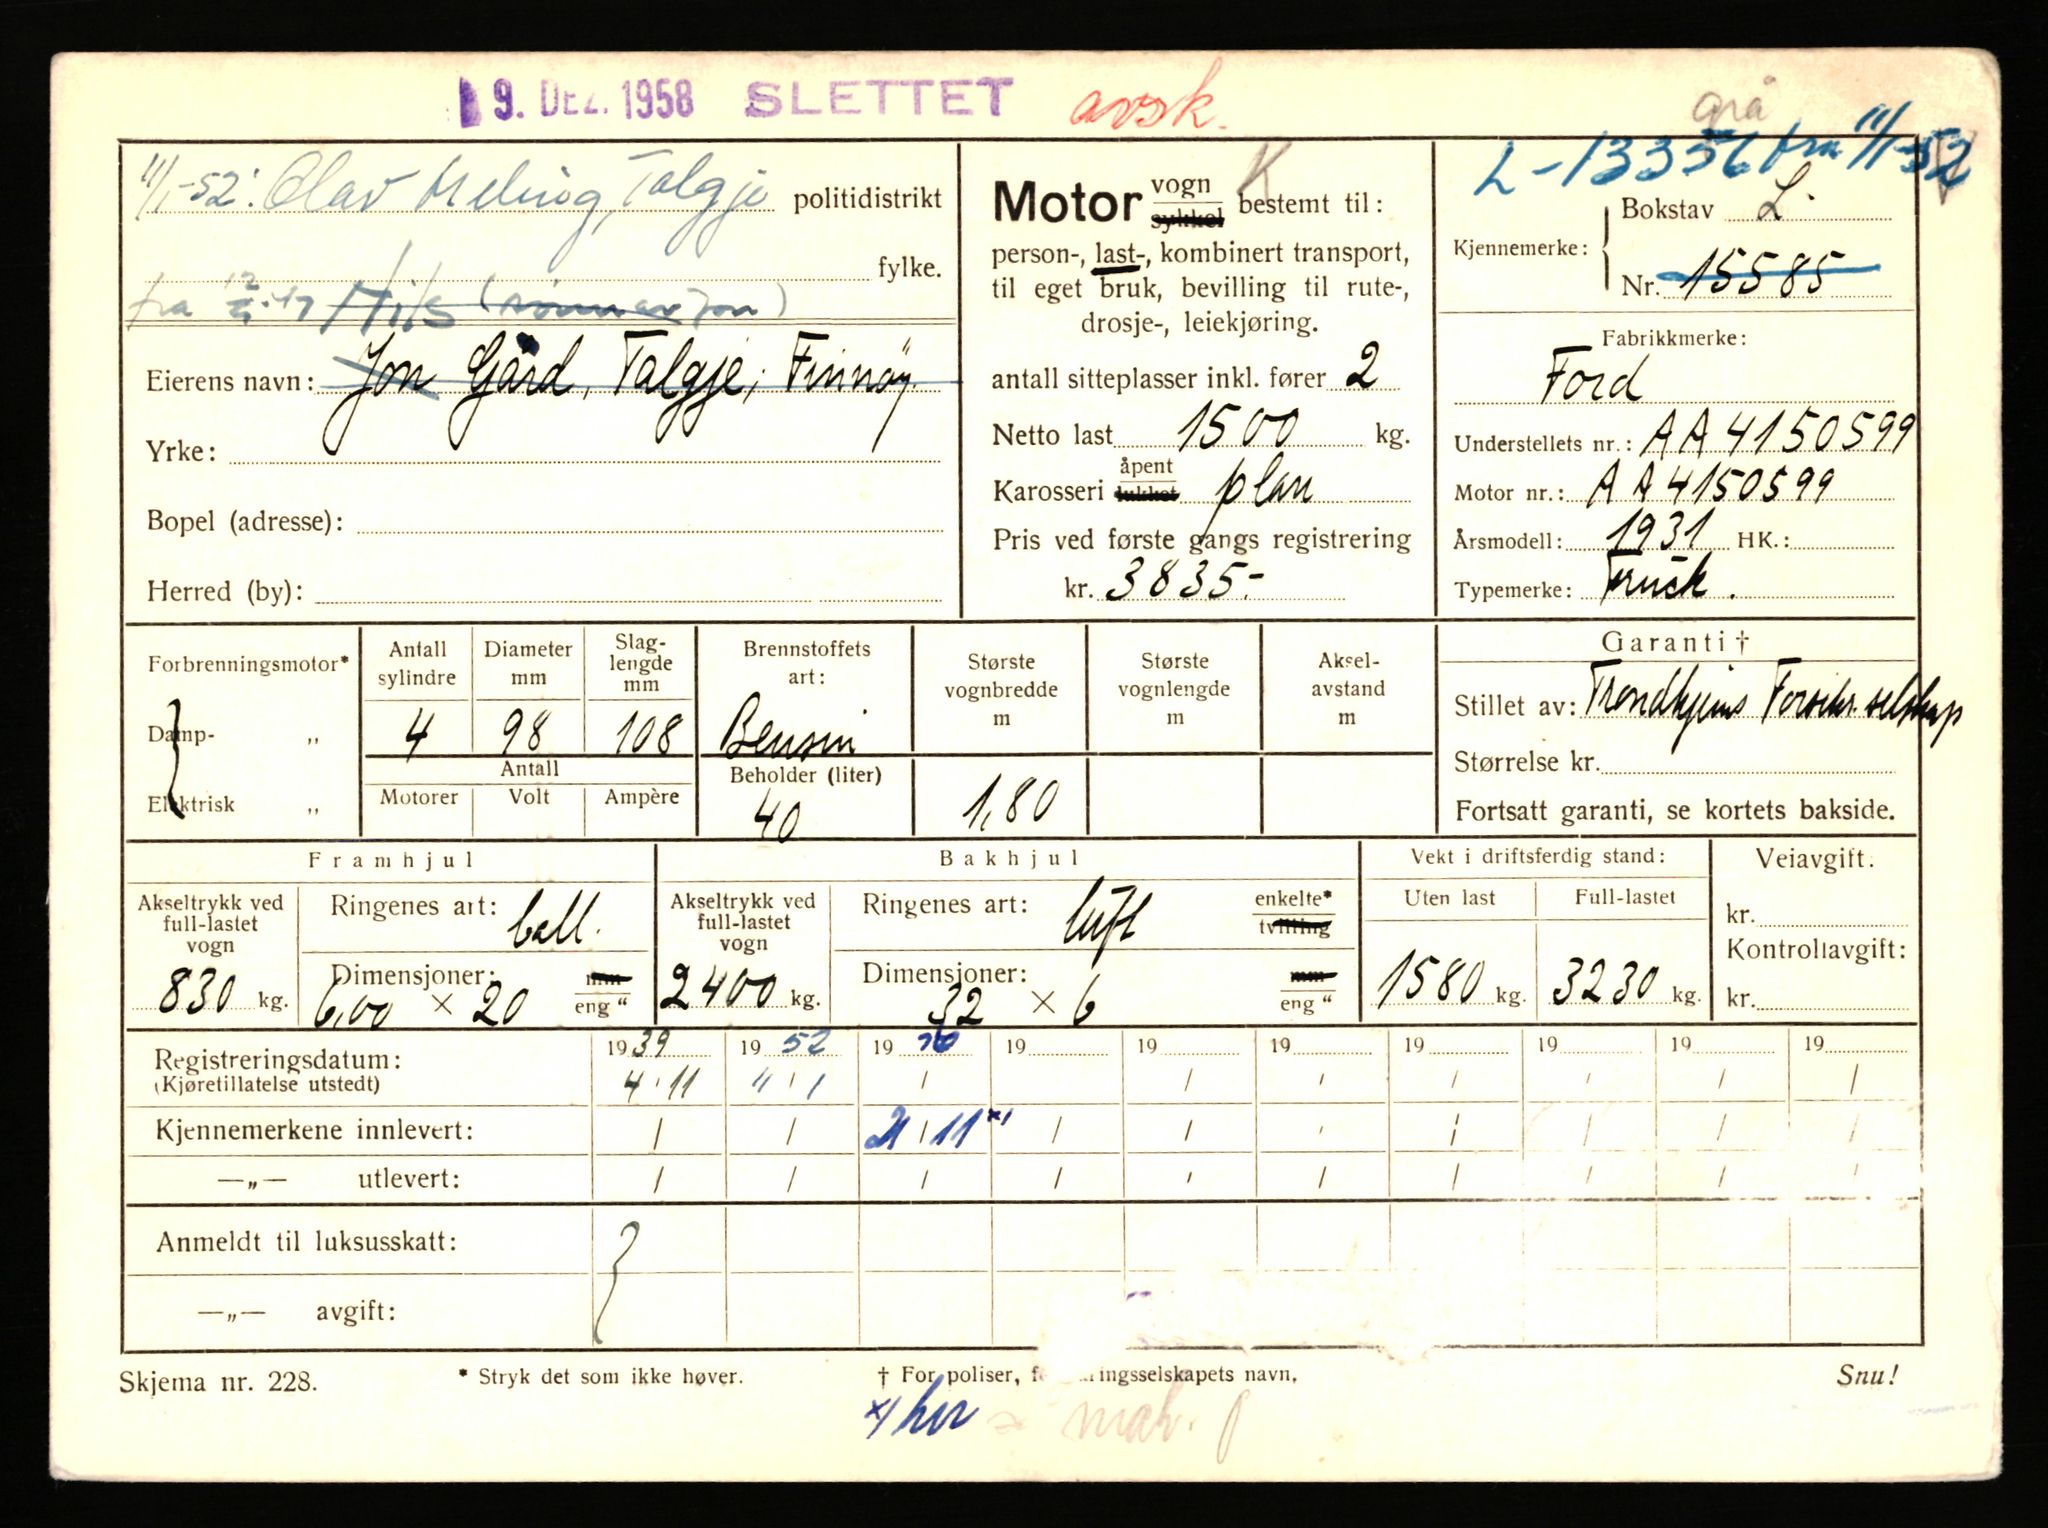 9. DEZ. 1958 SLETTET avsk.
grå
L-13356 fra 11/1-52
11/1-52: Olav Meling, Talgje politidistrikt
fylke.
fra
Eierens navn: Jon Gård, Talgje, Finnöy.
Yrke:
Bopel (adresse):
Herred (by):
K
Motor vogn sykkel bestemt til:
person-, last-, kombinert transport,
til eget bruk, bevilling til rute-,
drosje-, leiekjøring.
antall sitteplasser inkl. fører 2
Netto last 1500 kg.
Karosseri åpent lukket plan
Pris ved første gangs registrering
kr. 3835.-
Kjennemerke: Bokstav L.
Nr. 15585
Fabrikkmerke:
Ford
Understellets nr.: AA4150599
Motor nr.: AA4150599
Årsmodell: 1931 HK.:
Typemerke: Truck.
Forbrenningsmotor*
Damp- „
Elektrisk „
Antall sylindre 4
Diameter mm 98
Slag-lengde mm 108
Antall
Motorer Volt Ampère
Brennstoffets art: Bensin
Beholder (liter) 40
Største vognbredde m 1,80
Største vognlengde m
Aksel-avstand m
Garanti †
Stillet av: Trondhjems Forsikr. selskap
Størrelse kr.
Fortsatt garanti, se kortets bakside.
Framhjul
Akseltrykk ved full-lastet vogn 830 kg.
Ringenes art: ball.
Dimensjoner: 6,00 × 20 mm eng "
Bakhjul
Akseltrykk ved full-lastet vogn 2400 kg.
Ringenes art: luft enkelte* tvilling
Dimensjoner: 32 × 6 mm eng "
Vekt i driftsferdig stand:
Uten last Full-lastet
1580 kg. 3230 kg.
Veiavgift.
kr.
Kontrollavgift:
kr.
Registreringsdatum: 1939 1952 1956 19 19 19 19 19 19 19
(Kjøretillatelse utstedt) 4/11 11/1
Kjennemerkene innlevert: 21/11 x)
—„— utlevert:
Anmeldt til luksusskatt:
—„— avgift:
Skjema nr. 228.
* Stryk det som ikke høver.
† For poliser, f ringsselskapets navn.
Snu!
x) her